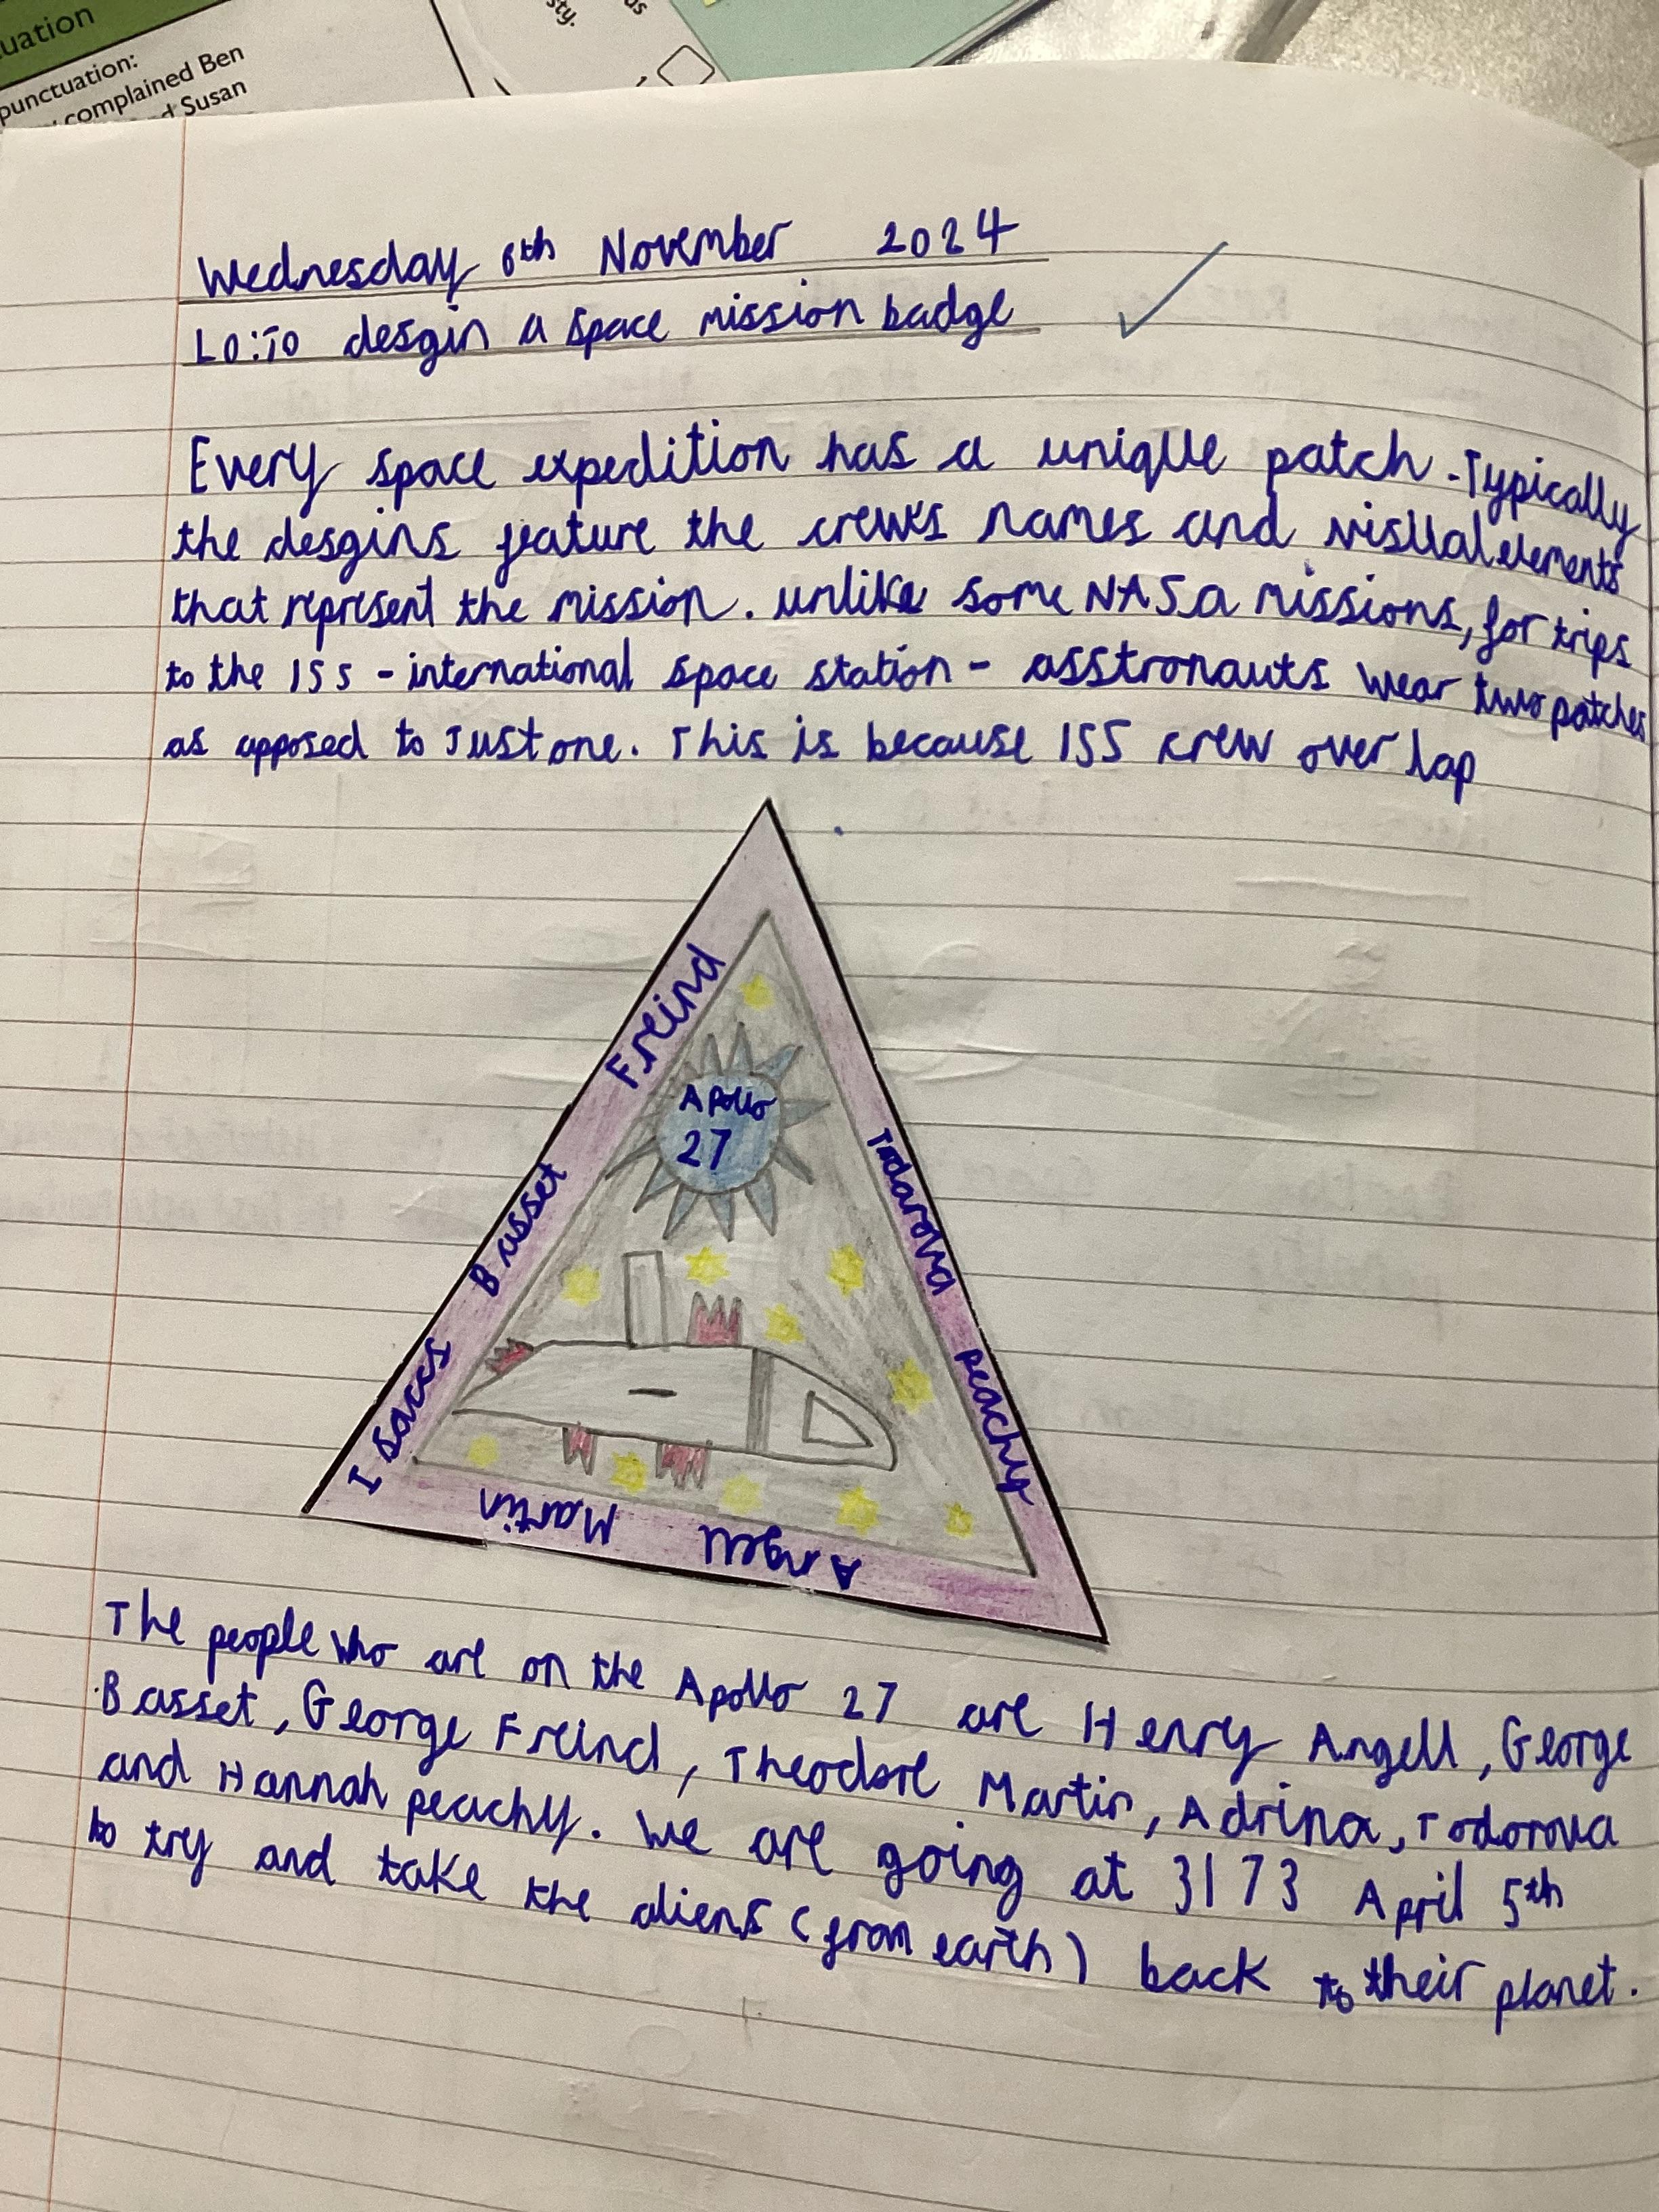 uation
punctuation:
complained Ben
d Susan
sty.
us
Wednesday 6th November 2024
LO:To desgin a space mission badge
Every space expedition has a unique patch. Typically
the desgins feature the crew's names and visual elements
that represent the mission. unlike some NASa missions, for trips
to the ISS - international space station - asstronauts wear two patches
as opposed to Just one. This is because ISS crew over lap
Freind
Basset
Isaccs
Apollo
27
Todarova
peachy
Martin
Angell
The people who are on the Apollo 27 are Henry Angell, George
Basset, George Freind, Theodore Martin, Adrina, Todorova
and Hannah peachy. We are going at 3173 April 5th
to try and take the aliens (from earth) back to their planet.